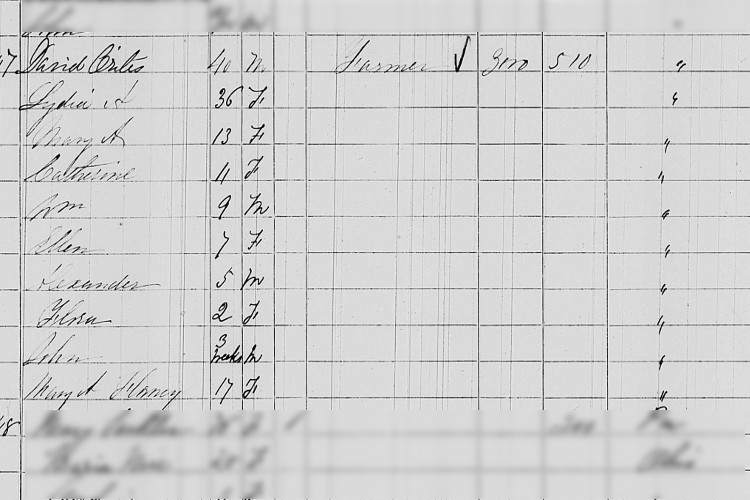 7 David Crites 40 M Farmer ✓ 3100 510 "
Lydia A 36 F "
Mary A 13 F "
Catherine 11 F "
Wm 9 M "
Ellen 7 F "
Alexander 5 M "
Flora 2 F "
John 3 weeks M "
Mary A 17 F "